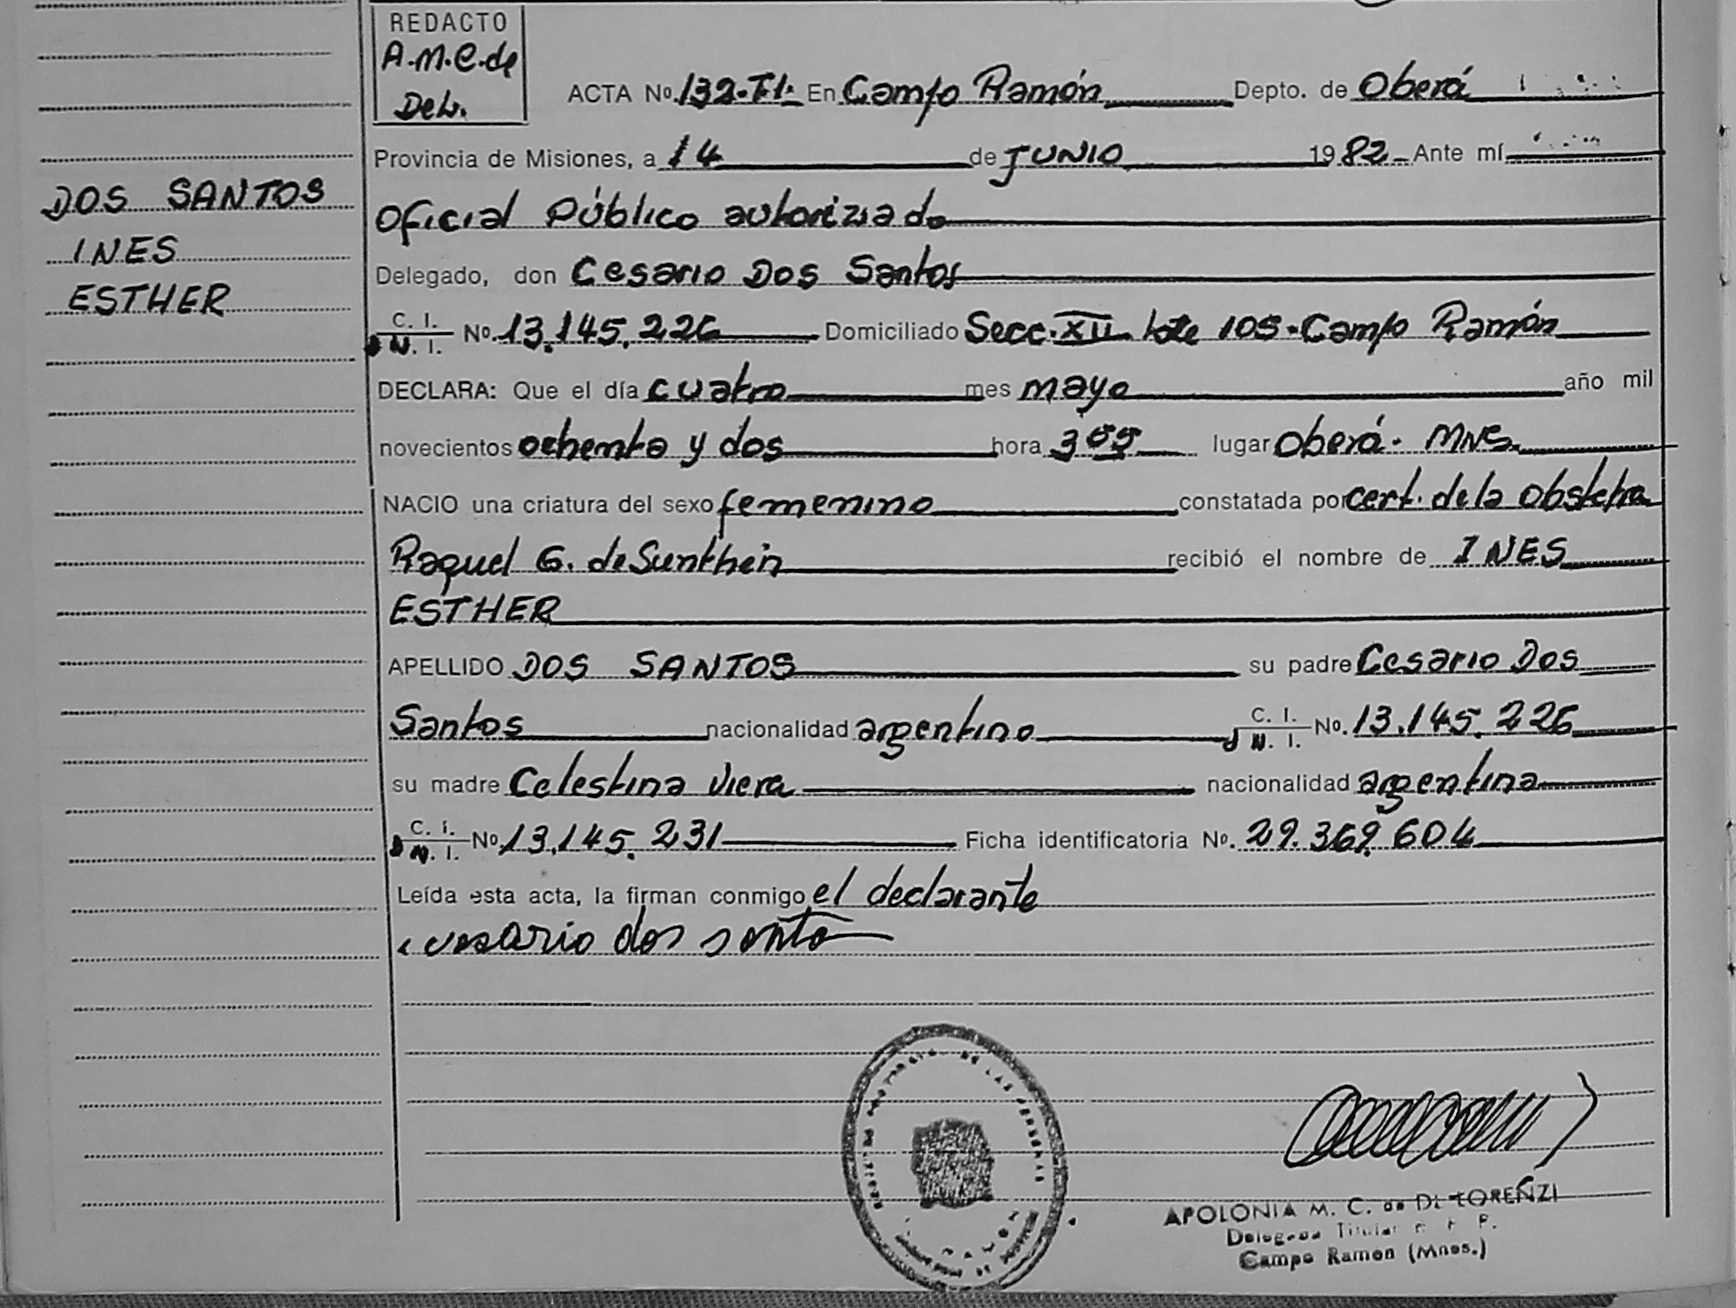 REDACTO
A.M.C. de
DeL.
ACTA No. 132-T1. En Campo Ramón Depto. de Oberá
Provincia de Misiones, a 14 de JUNIO 1982 Ante mí
Oficial Público autorizado
Delegado, don Cesario Dos Santos
C. I.
D N. I. No. 13.145.226 Domiciliado Secc. XII lote 105-Campo Ramón
DECLARA: Que el día cuatro mes mayo año mil
novecientos ochenta y dos hora 3 55 lugar Oberá. MNES.
NACIO una criatura del sexo femenino constatada por cert. de la Obstetra
Raquel G. de recibió el nombre de INES
ESTHER
APELLIDO DOS SANTOS su padre Cesario Dos
Santos nacionalidad argentino C. I.
D N. I. No. 13.145.226
su madre Celestina Viera nacionalidad argentina
C. I.
D N. I. No 13.145.231 Ficha identificatoria No. 29.369.604
Leída esta acta, la firman conmigo el declarante
cesario dos santo
DOS SANTOS
INES
ESTHER
APOLONIA M. C. de DI LORENZI
Delegada Titular R. P.
Campo Ramon (Mnes.)